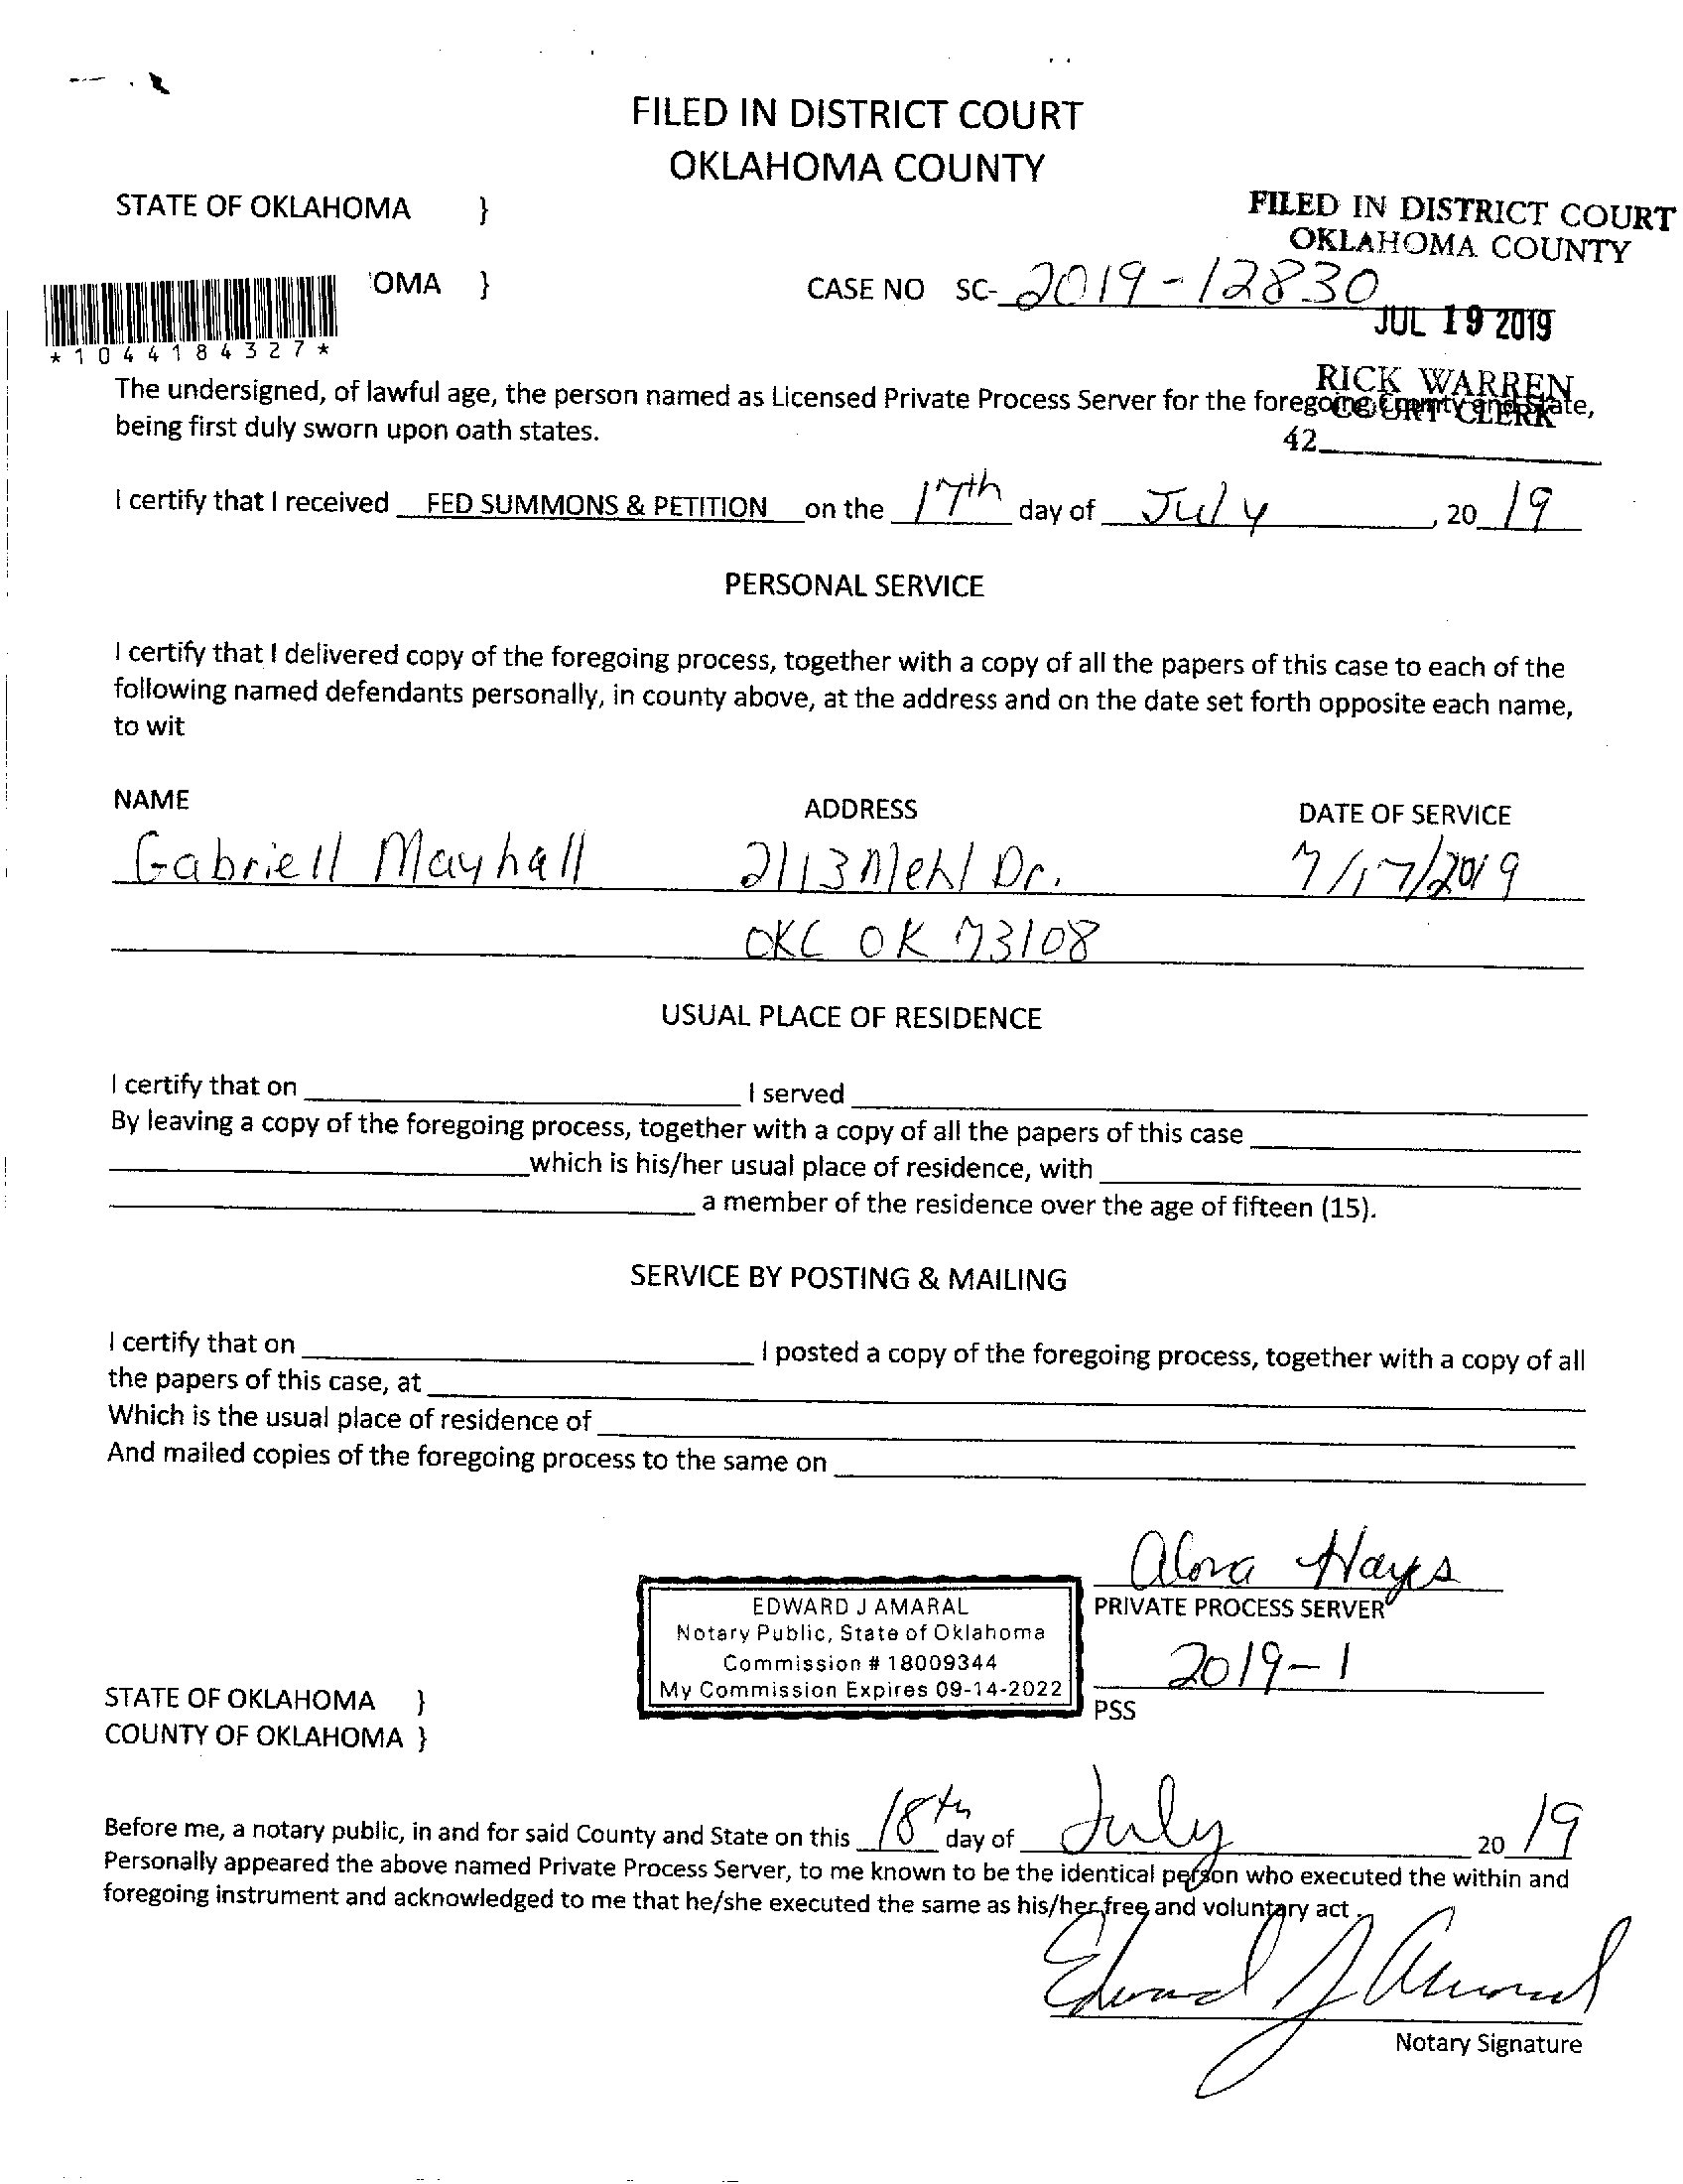 FILED IN DISTRICT COURT
OKLAHOMA COUNTY
STATE OF OKLAHOMA }
FILED IN DISTRICT COURT
OKLAHOMA COUNTY
'OMA }
CASE NO SC- 2019-12830
JUL 19 2019
*1044184327*
RICK WARREN
COURT CLERK
42
The undersigned, of lawful age, the person named as Licensed Private Process Server for the foregoing County and State,
being first duly sworn upon oath states.
I certify that I received FED SUMMONS & PETITION on the 17th day of July, 20 19
PERSONAL SERVICE
I certify that I delivered copy of the foregoing process, together with a copy of all the papers of this case to each of the
following named defendants personally, in county above, at the address and on the date set forth opposite each name,
to wit
NAME ADDRESS DATE OF SERVICE
Gabriell Mayhall 2113 Mehl Dr. 7/17/2019
OKC OK 73108
USUAL PLACE OF RESIDENCE
I certify that on I served
By leaving a copy of the foregoing process, together with a copy of all the papers of this case
which is his/her usual place of residence, with
a member of the residence over the age of fifteen (15).
SERVICE BY POSTING & MAILING
I certify that on I posted a copy of the foregoing process, together with a copy of all
the papers of this case, at
Which is the usual place of residence of
And mailed copies of the foregoing process to the same on
Alora Hayes
PRIVATE PROCESS SERVER
EDWARD J AMARAL
Notary Public, State of Oklahoma
Commission # 18009344
My Commission Expires 09-14-2022
2019-1
PSS
STATE OF OKLAHOMA }
COUNTY OF OKLAHOMA }
Before me, a notary public, in and for said County and State on this 18th day of July 20 19
Personally appeared the above named Private Process Server, to me known to be the identical person who executed the within and
foregoing instrument and acknowledged to me that he/she executed the same as his/her free and voluntary act.
Edward J Amaral
Notary Signature